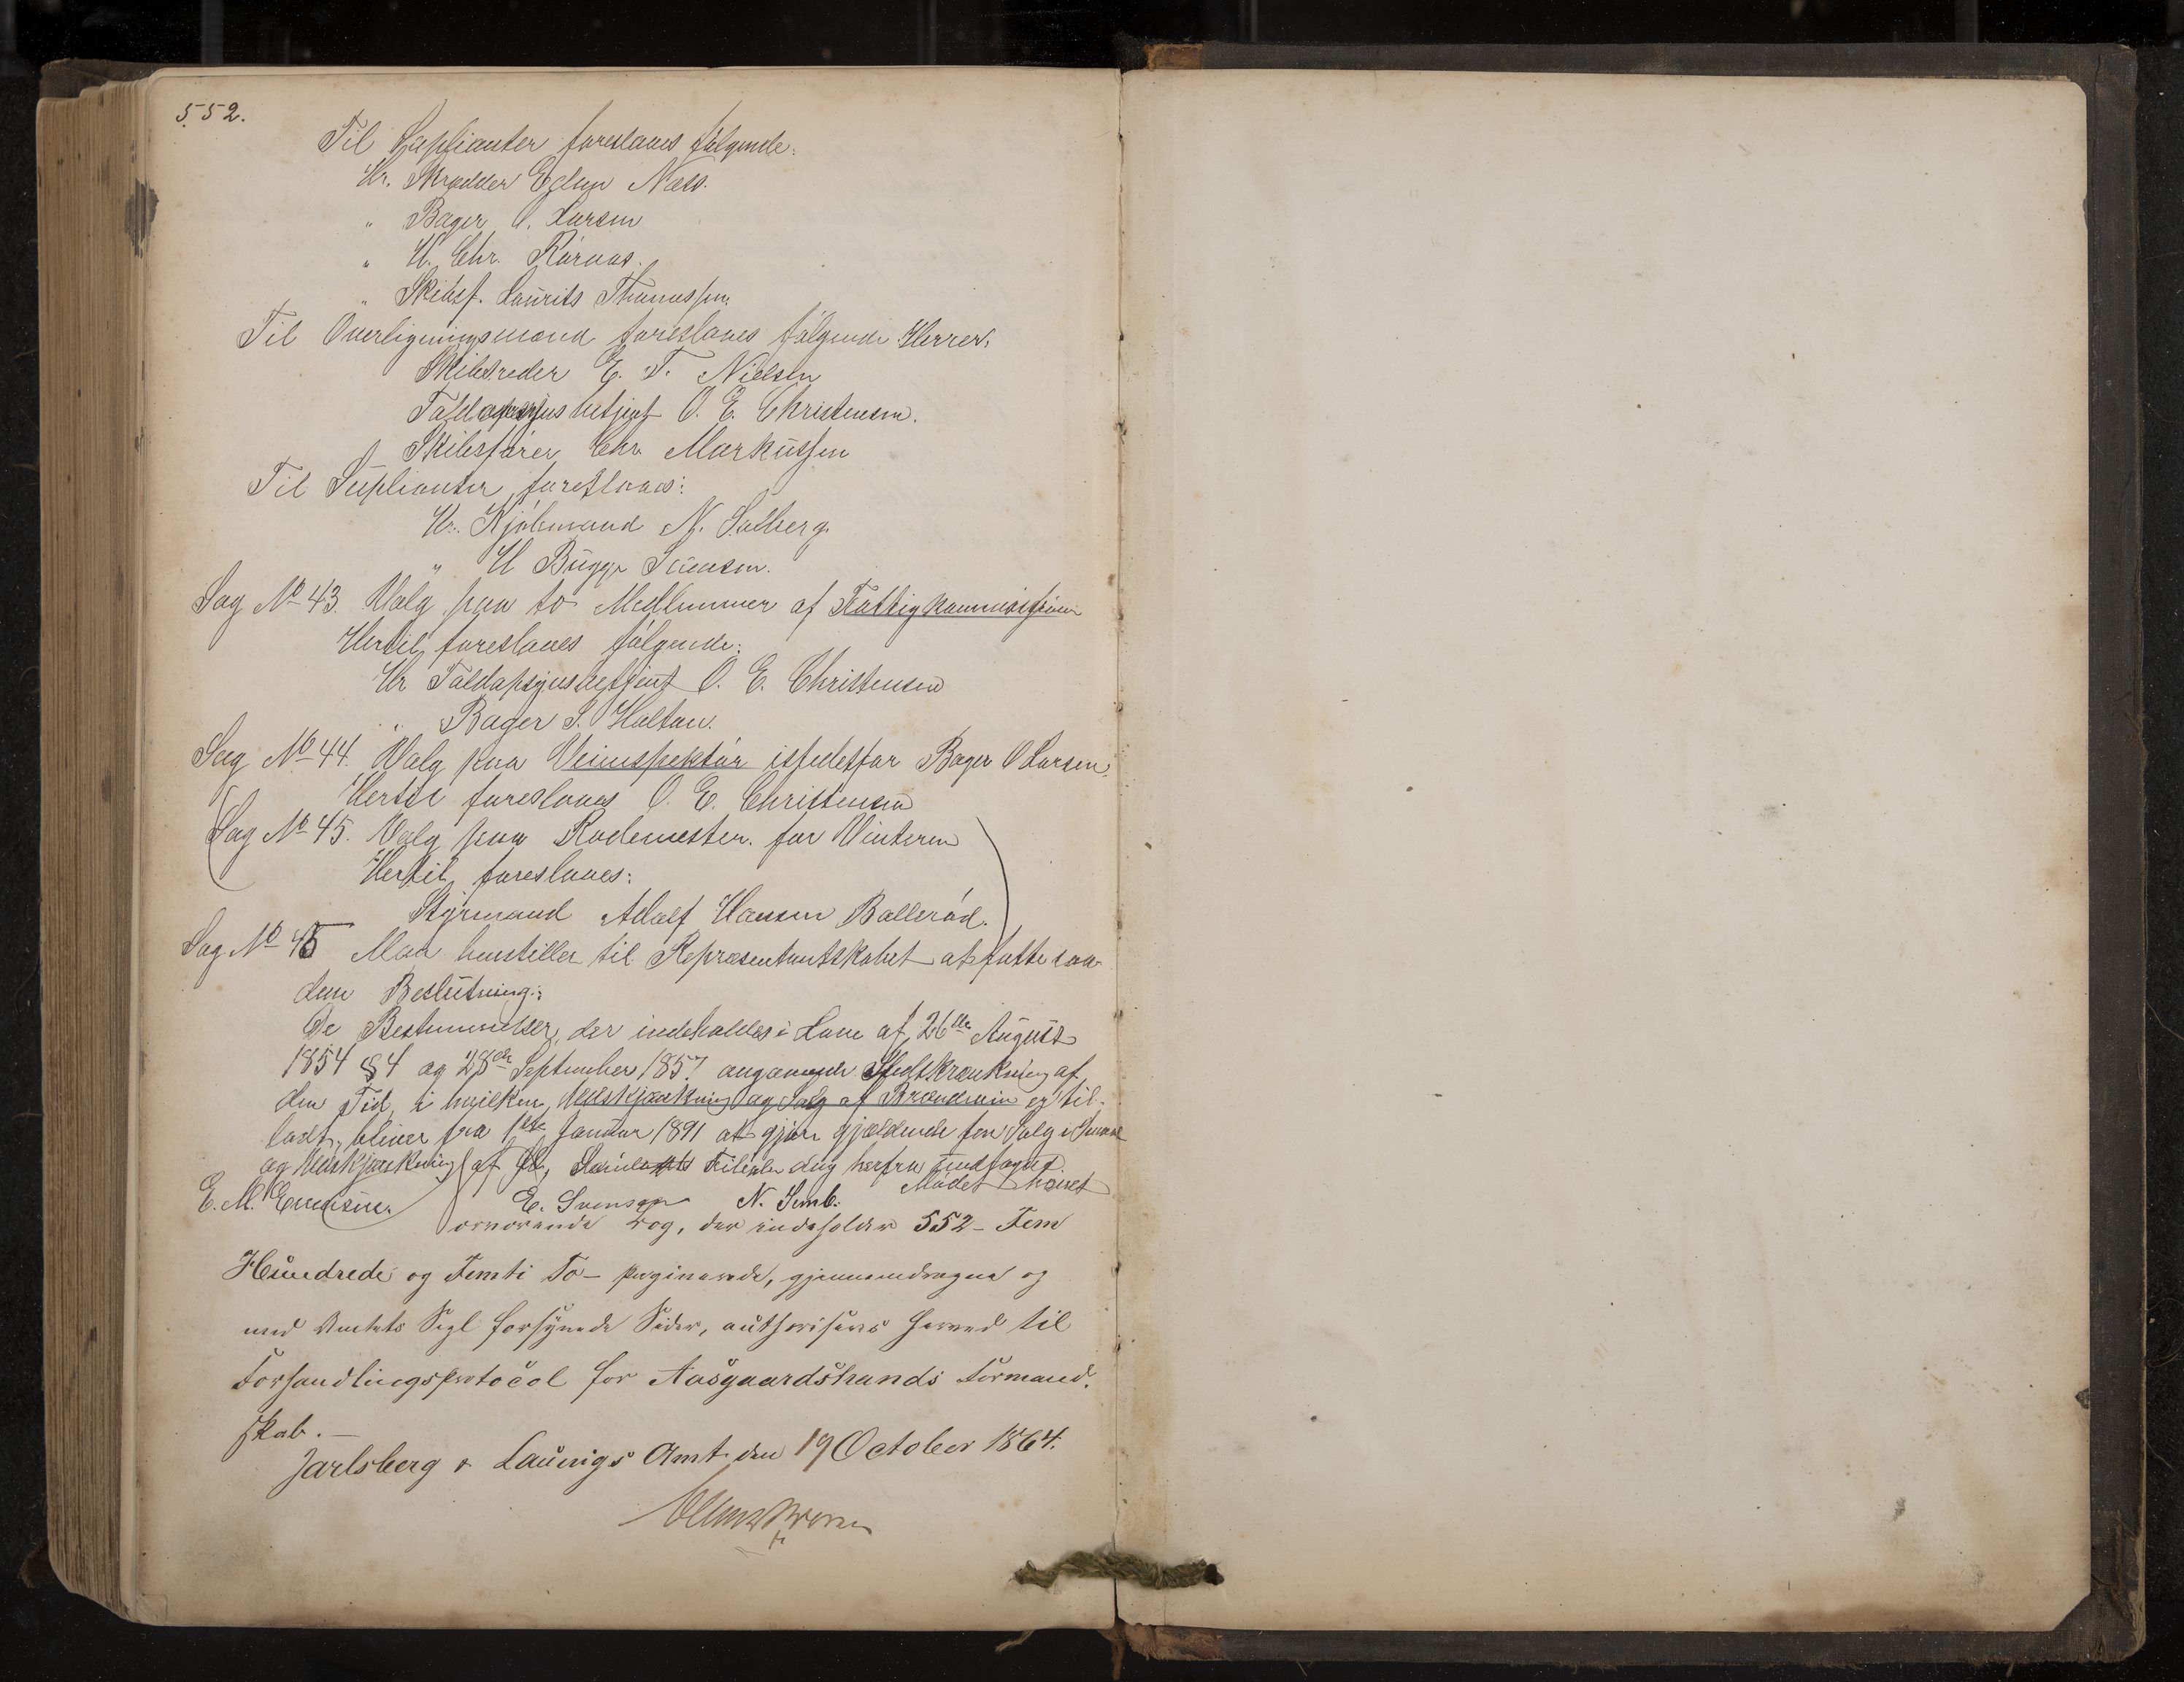 552.
Til Suplianter foreslaaes følgende:
Hr. Skrædder Edlun Næss.
" Bager O. Larsen
" H. Chr. Rørnæs.
" Skibsf. Laurits Thomassen.
Til Overligningsmænd foreslaaes følgende Herrer,
Skibsreder E. T. Nielsen
Toldopsynsbetjent O. E. Christensen.
Skibsfører Chr. Markussen
Til Suplianter foreslaaes:
Hr. Kjøbmand N. Solberg.
" H Bugge
Sag No 43. Valg paa to Medlemmer af Fattigkommissionen
Hertil foreslaaes følgende:
Hr Toldopsynsbetjent O. E. Christensen
" Bager S. Holtan.
Sag No 44. Valg paa Veiinspektør istedetfor Bager O Larsen.
Hertil foreslaaes O. E. Christensen
Sag No 45. Valg paa Rodemester for Vinteren
Hertil foreslaaes:
Styrmand Adolf Hansen Ballerød.
Sag No 45 Man henstiller til Repræsentantskabet at fatte saa-
dan Beslutning:
De Bestemmelser, der indeholdes i Love af 26de August
1854 § 4 og 28de September 1857 angaaende Indskrænkning af
den Tid, i hvilken Udskjænkning og Salg af Brændevin er til-
ladt, bliver fra 1ste Januar 1891 at gjøre gjældende for Salg i Smaat
og Udskjænkning af Øl, dog herfra undtaget
Mødet hævet
E. M. E. Svensen N. Semb.
Foranførende Bog, der indeholder 552 - Fem
Hundrede og Femti To - paginerede, gjennemdragne og
med Amtets Segl forsynede Sider, authoriseres herved til
Forhandlingsprotocol for Aasgaardstrands Formand-
skab. -
Jarlsberg & Laurvigs Amt den 19 October 1864.